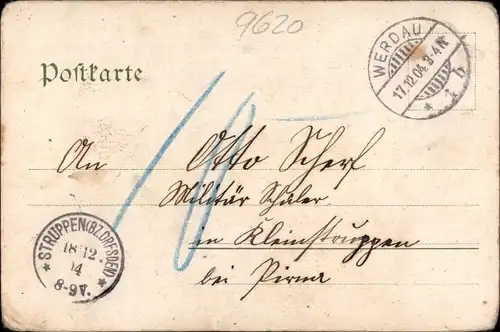 9620
WERDAU
17.12.04. 3-4 N
* 1 b
Postkarte
10
An Otto Scherf
Militär Schüler
in Kleinstruppen
bei Pirna
STRUPPEN (BZ. DRESDEN)
18 12
04
8-9 V.